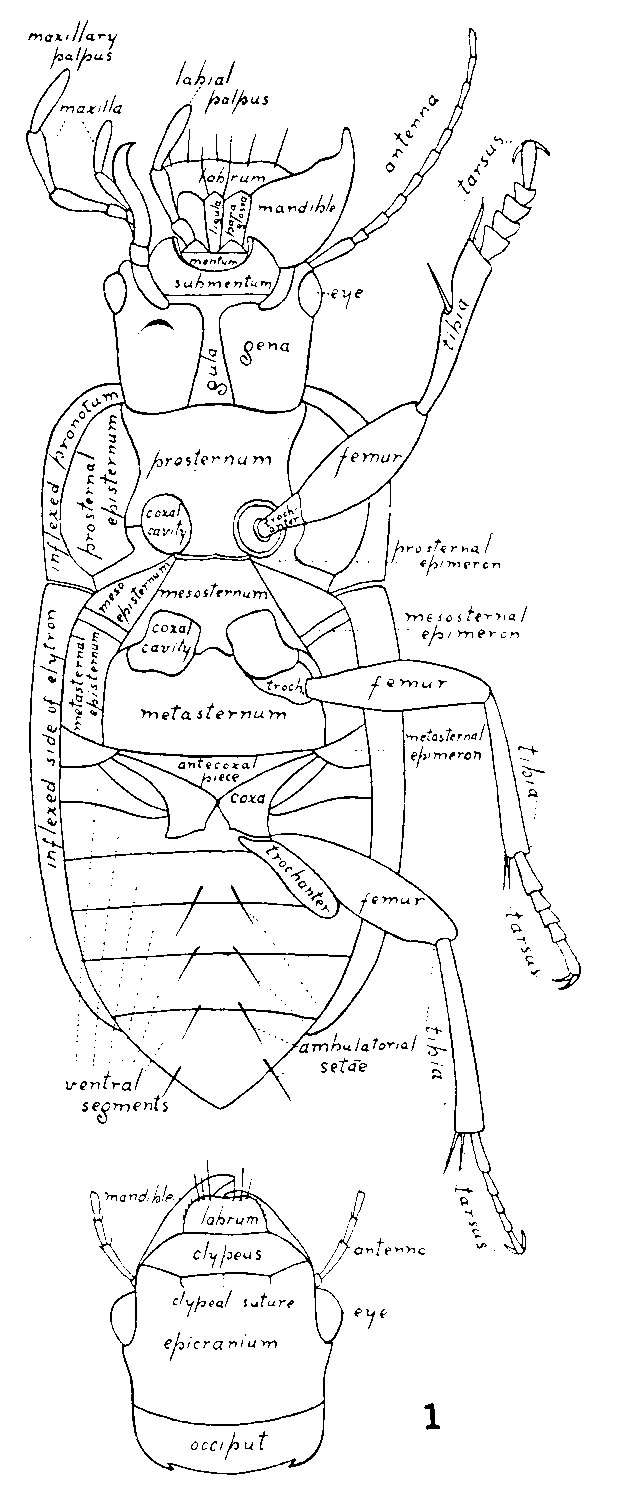 maxillary
palpus
maxilla
labial
palpus
antenna
tarsus
labrum
ligula
para
glossa
mandible
mentum
submentum
eye
tibia
gula
gena
inflexed pronotum
prosternal
episternum
prosternum
femur
coxal
cavity
troch
anter
prosternal
epimeron
meso
episternum
mesosternum
mesosternal
epimeron
coxal
cavity
metasternal
episternum
inflexed side of elytron
troch.
femur
metasternum
metasternal
epimeron
tibia
antecoxal
piece
coxa
trochanter
femur
tarsus
ambulatorial
setae
tibia
ventral
segments
tarsus
mandible
labrum
clypeus
antenna
clypeal suture
eye
epicranium
occiput
1